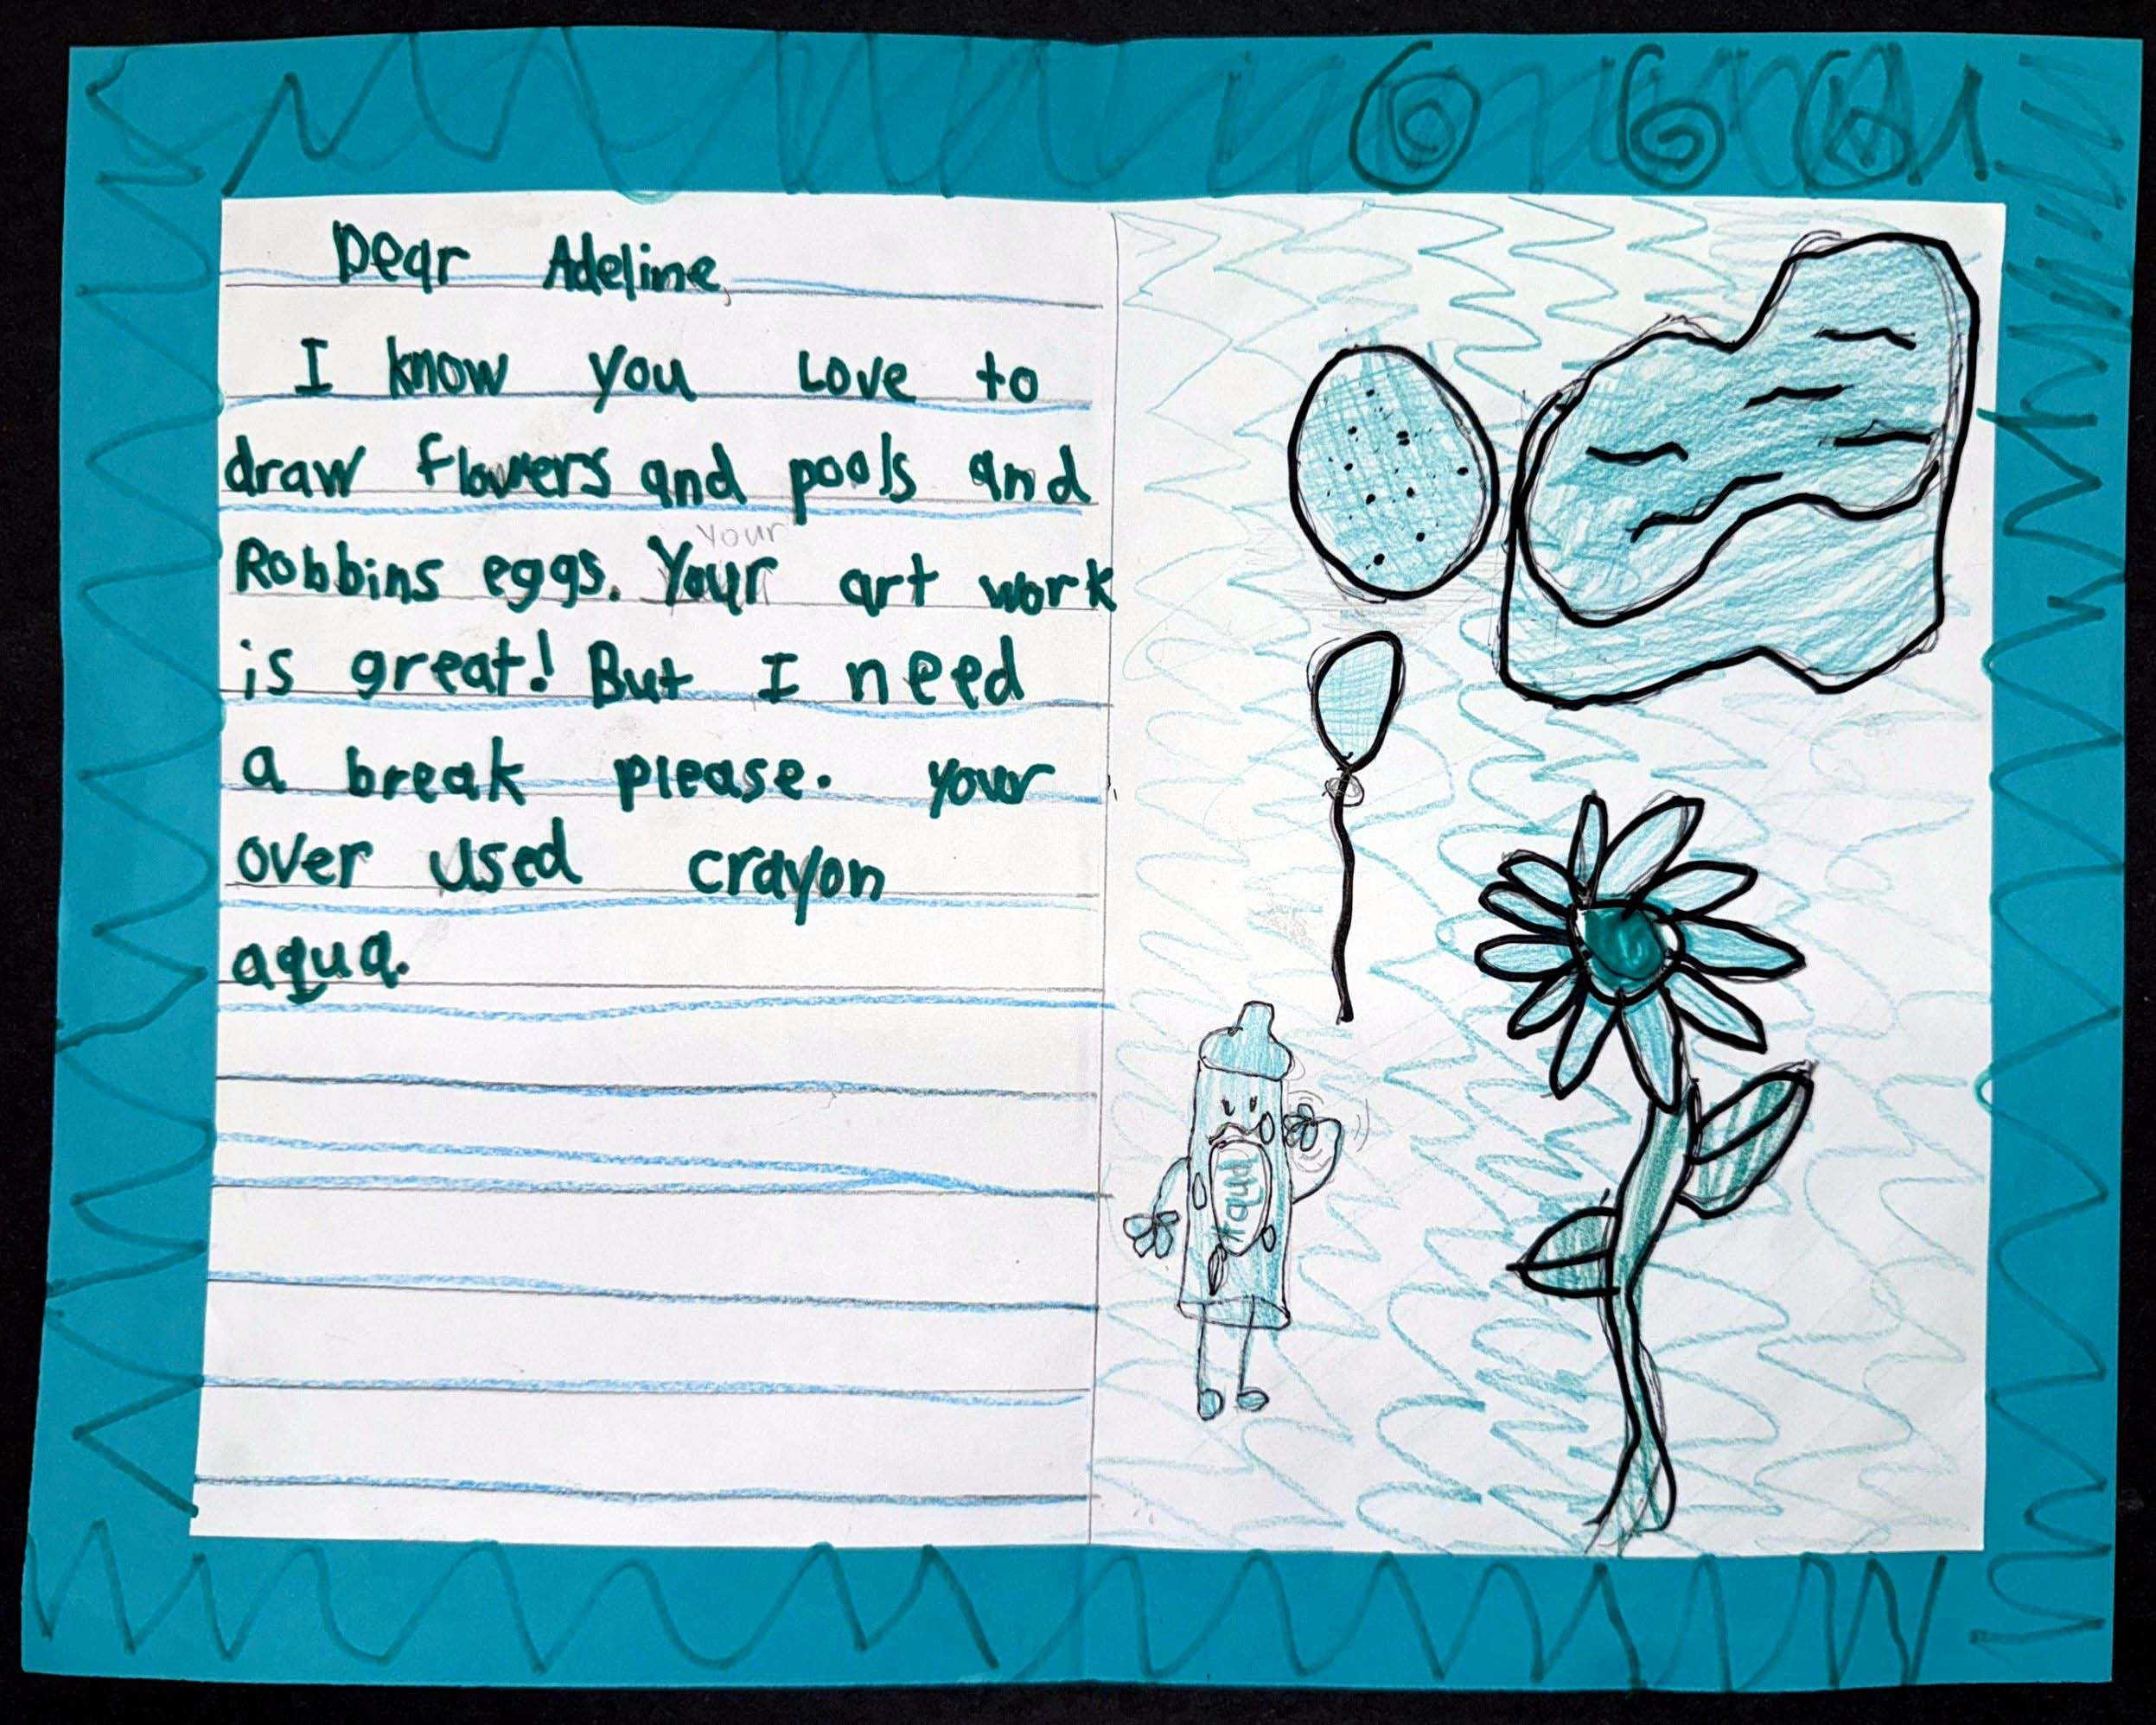 Dear Adeline,
I know you Love to
draw flowers and pools and
Your
Robbins eggs. Your art work
is great! But I need
a break please. your
over used crayon
aqua.
aqua